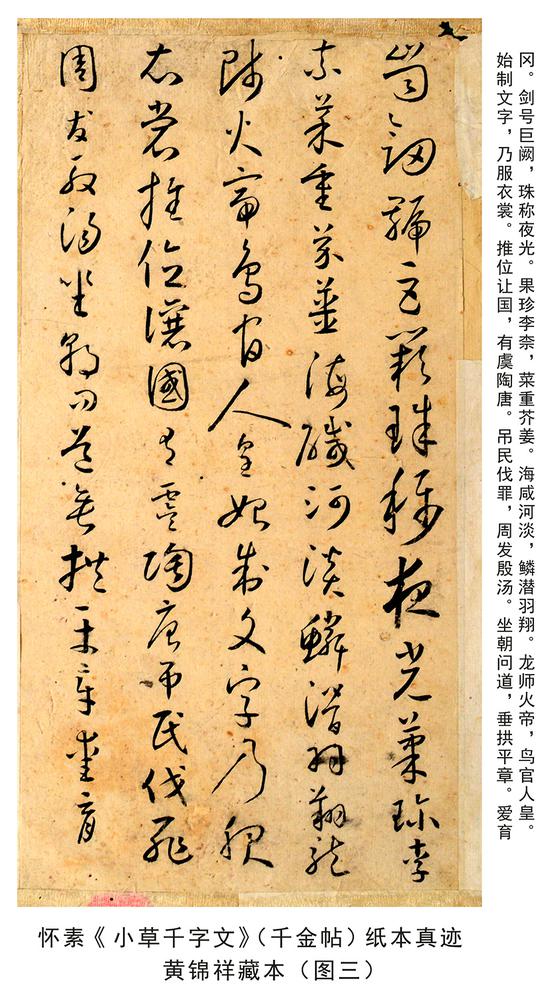 冈。剑号巨阙，珠称夜光。果珍李奈，菜重芥姜。海咸河淡，鳞潜羽翔。龙师火帝，鸟官人皇。
始制文字，乃服衣裳。推位让国，有虞陶唐。吊民伐罪，周发殷汤。坐朝问道，垂拱平章。爱育
崗劒號巨闕珠稱夜光菓珎李
柰菜重芥薑海醎河淡鱗潛羽翔龍
師火帝鳥官人皇始制文字乃服
衣裳推位讓國有虞陶唐弔民伐罪
周發殷湯坐朝問道垂拱平章愛育
怀素《小草千字文》（千金帖）纸本真迹
黄锦祥藏本（图三）